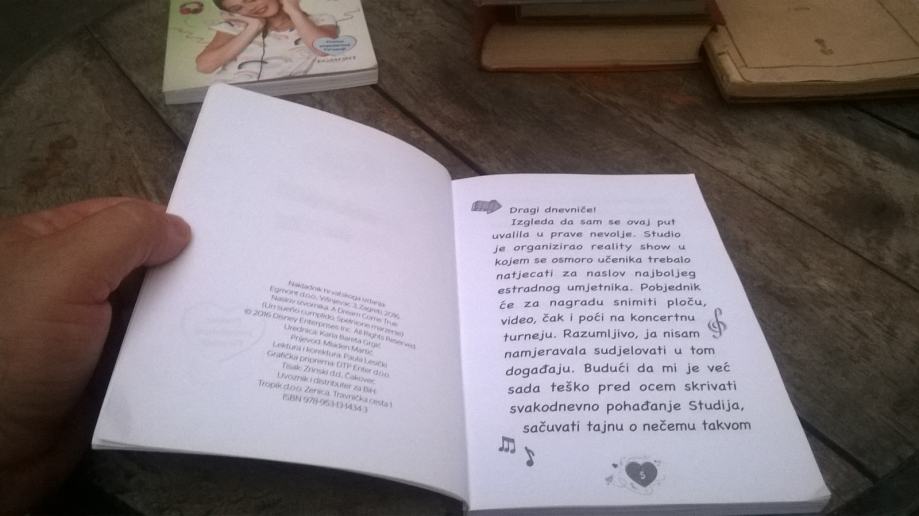 EGMONT
Nakladnik hrvatskoga izdanja
Egmont d.o.o., Višnjevac 3, Zagreb, 2016.
Naslov izvornika: A Dream Come True
(Un sueño cumplido, Spełnione marzenie)
© 2016 Disney Enterprises Inc. All Rights Reserved.
Urednica: Karla Bareta Grgić
Prijevod: Mladen Martić
Lektura i korektura: Paula Lesički
Grafička priprema: DTP Enter d.o.o.
Tisak: Zrinski d.d., Čakovec
Uvoznik i distributer za BiH:
Tropik d.o.o. Zenica, Travnička cesta 1
ISBN 978-953-13-1434-3
Dragi dnevniče!
Izgleda da sam se ovaj put
uvalila u prave nevolje. Studio
je organizirao reality show u
kojem se osmoro učenika trebalo
natjecati za naslov najboljeg
estradnog umjetnika. Pobjednik
će za nagradu snimiti ploču,
video, čak i poći na koncertnu
turneju. Razumljivo, ja nisam
namjeravala sudjelovati u tom
događaju. Budući da mi je već
sada teško pred ocem skrivati
svakodnevno pohađanje Studija,
sačuvati tajnu o nečemu takvom
5